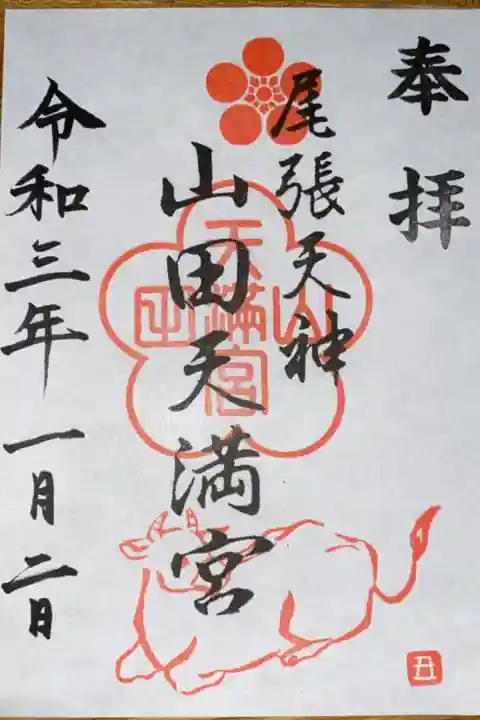 奉拝
尾張天神
山田天満宮
山田天満宮
令和三年一月二日
丑